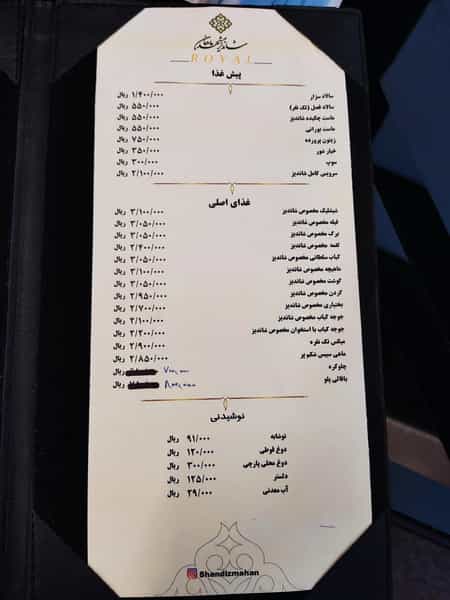 ROYAL
پیش غذا
سالاد سزار ۱/۴۰۰/۰۰۰ ریال
سالاد فصل (تک نفر) ۵۵۰/۰۰۰ ریال
ماست چکیده شاندیز ۵۵۰/۰۰۰ ریال
ماست بورانی ۵۵۰/۰۰۰ ریال
زیتون پرورده ۷۵۰/۰۰۰ ریال
خیار شور ۳۵۰/۰۰۰ ریال
سوپ ۳۰۰/۰۰۰ ریال
سرویس کامل شاندیز ۲/۱۰۰/۰۰۰ ریال
غذای اصلی
شیشلیک مخصوص شاندیز ۳/۱۰۰/۰۰۰ ریال
فیله مخصوص شاندیز ۳/۰۵۰/۰۰۰ ریال
برگ مخصوص شاندیز ۳/۰۵۰/۰۰۰ ریال
لقمه مخصوص شاندیز ۲/۴۰۰/۰۰۰ ریال
کباب سلطانی مخصوص شاندیز ۳/۰۵۰/۰۰۰ ریال
ماهیچه مخصوص شاندیز ۳/۱۰۰/۰۰۰ ریال
گوشت مخصوص شاندیز ۳/۰۵۰/۰۰۰ ریال
گردن مخصوص شاندیز ۲/۹۵۰/۰۰۰ ریال
بختیاری مخصوص شاندیز ۲/۷۰۰/۰۰۰ ریال
جوجه کباب مخصوص شاندیز ۲/۱۰۰/۰۰۰ ریال
جوجه کباب با استخوان مخصوص شاندیز ۲/۲۰۰/۰۰۰ ریال
میکس تک نفره ۲/۹۰۰/۰۰۰ ریال
ماهی سیبس شکم پر ۲/۸۵۰/۰۰۰ ریال
چلوکره ریال
باقالی پلو ریال
نوشیدنی
نوشابه ۹۱/۰۰۰ ریال
دوغ قوطی ۱۲۰/۰۰۰ ریال
دوغ محلی پارچی ۳۰۰/۰۰۰ ریال
دلستر ۱۲۵/۰۰۰ ریال
آب معدنی ۲۹/۰۰۰ ریال
Shandizmahan